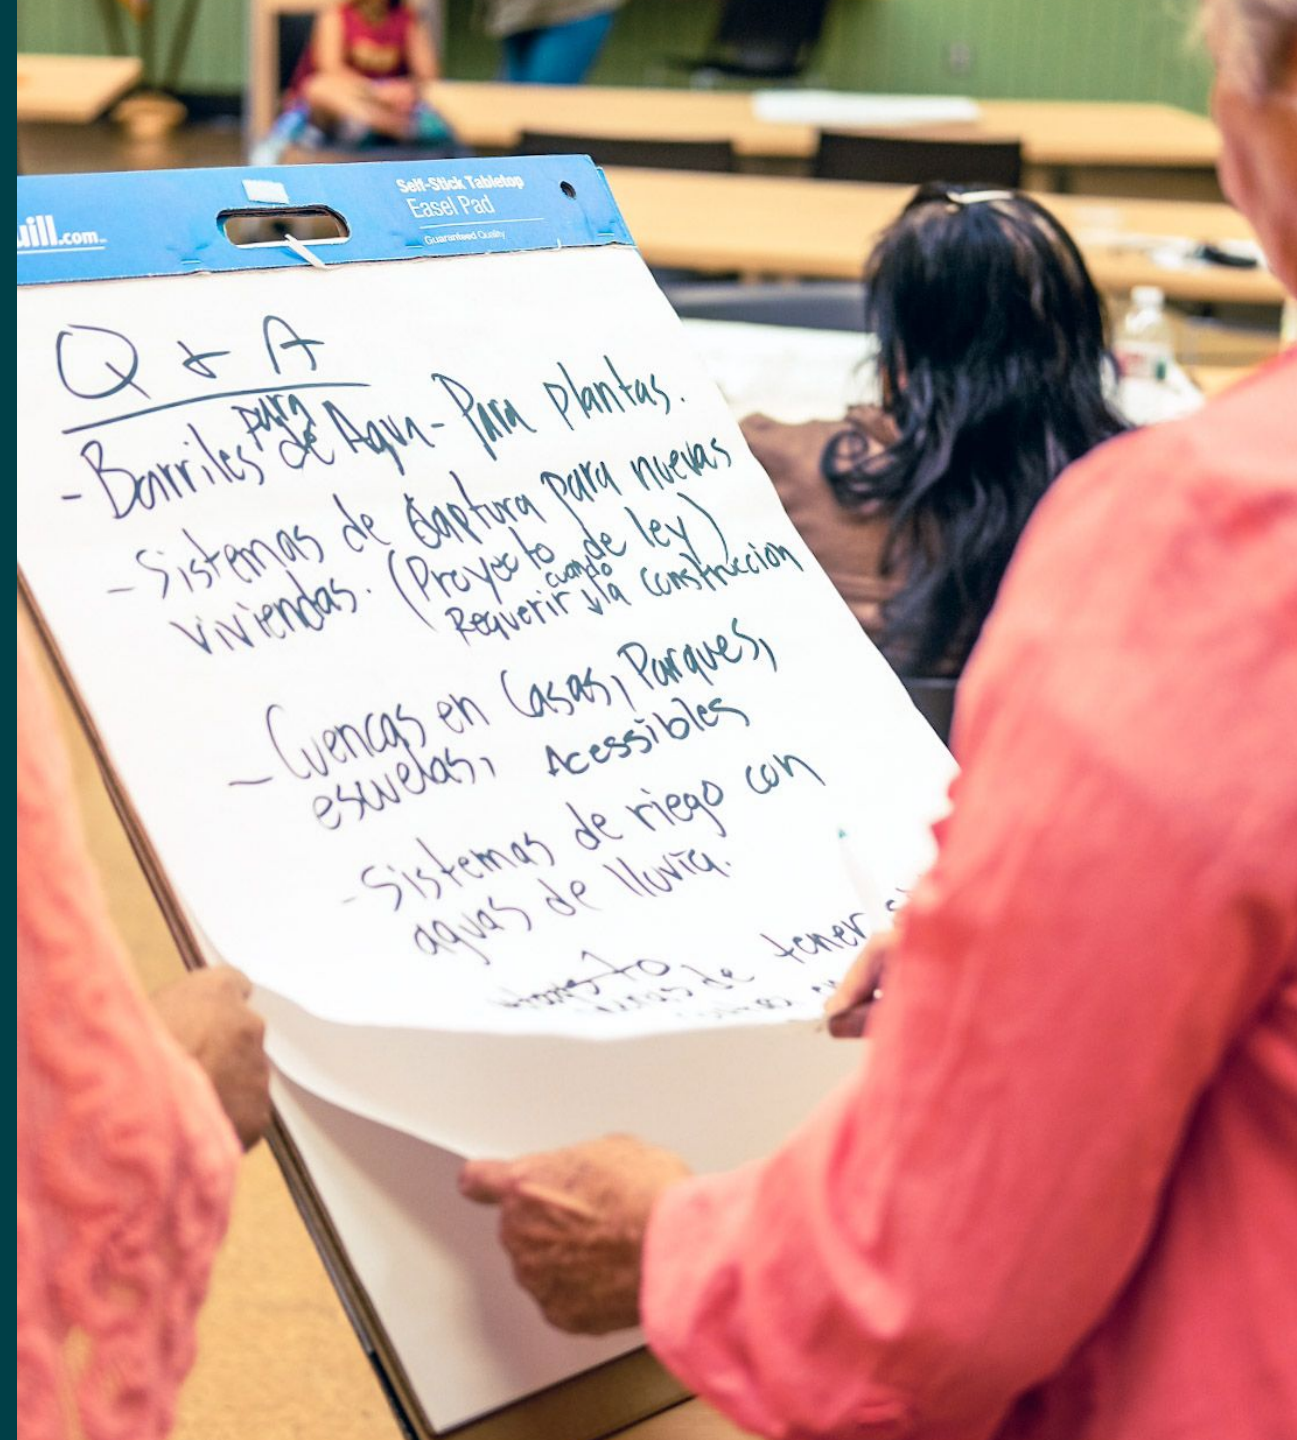 uill.com
Self-Stick Tabletop
Easel Pad
Guaranteed Quality
Q & A
para
- Barriles de Agua - Para plantas.
- Sistemas de Captura para nuevas
viviendas. (Proyecto de ley)
cuando
Requerir la construccion
- Cuencas en Casas, Parques,
escuelas, Acessibles
- Sistemas de riego con
aguas de lluvia.
de tener